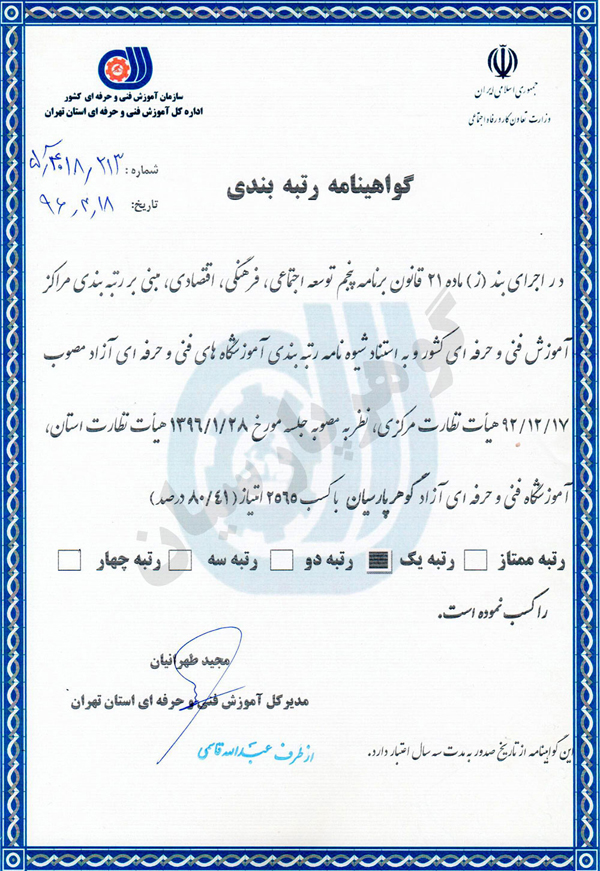 جمهوری اسلامی ایران
وزارت تعاون کار و رفاه اجتماعی
سازمان آموزش فنی و حرفه ای کشور
اداره کل آموزش فنی و حرفه ای استان تهران
شماره:
تاریخ: ۹۶,۳,۱۸
گواهینامه رتبه بندی
در اجرای بند (ز) ماده ۲۱ قانون برنامه پنجم توسعه اجتماعی، فرهنگی، اقتصادی، مبنی بر رتبه بندی مراکز
آموزش فنی و حرفه ای کشور و به استناد شیوه نامه رتبه بندی آموزشگاه های فنی و حرفه ای آزاد مصوب
۹۲/۱۲/۱۷ هیأت نظارت مرکزی، نظر به مصوبه جلسه مورخ ۱۳۹۶/۱/۲۸ هیأت نظارت استان،
آموزشگاه فنی و حرفه ای آزاد گوهر پارسیان با کسب ۲۵۶۵ امتیاز (۸۰/۴۱ درصد)
رتبه ممتاز رتبه یک رتبه دو رتبه سه رتبه چهار
را کسب نموده است.
مجید طهرانیان
مدیر کل آموزش فنی و حرفه ای استان تهران
از طرف عبدالله قاسمی
این گواهینامه از تاریخ صدور به مدت سه سال اعتبار دارد.
گوهر پارسیان